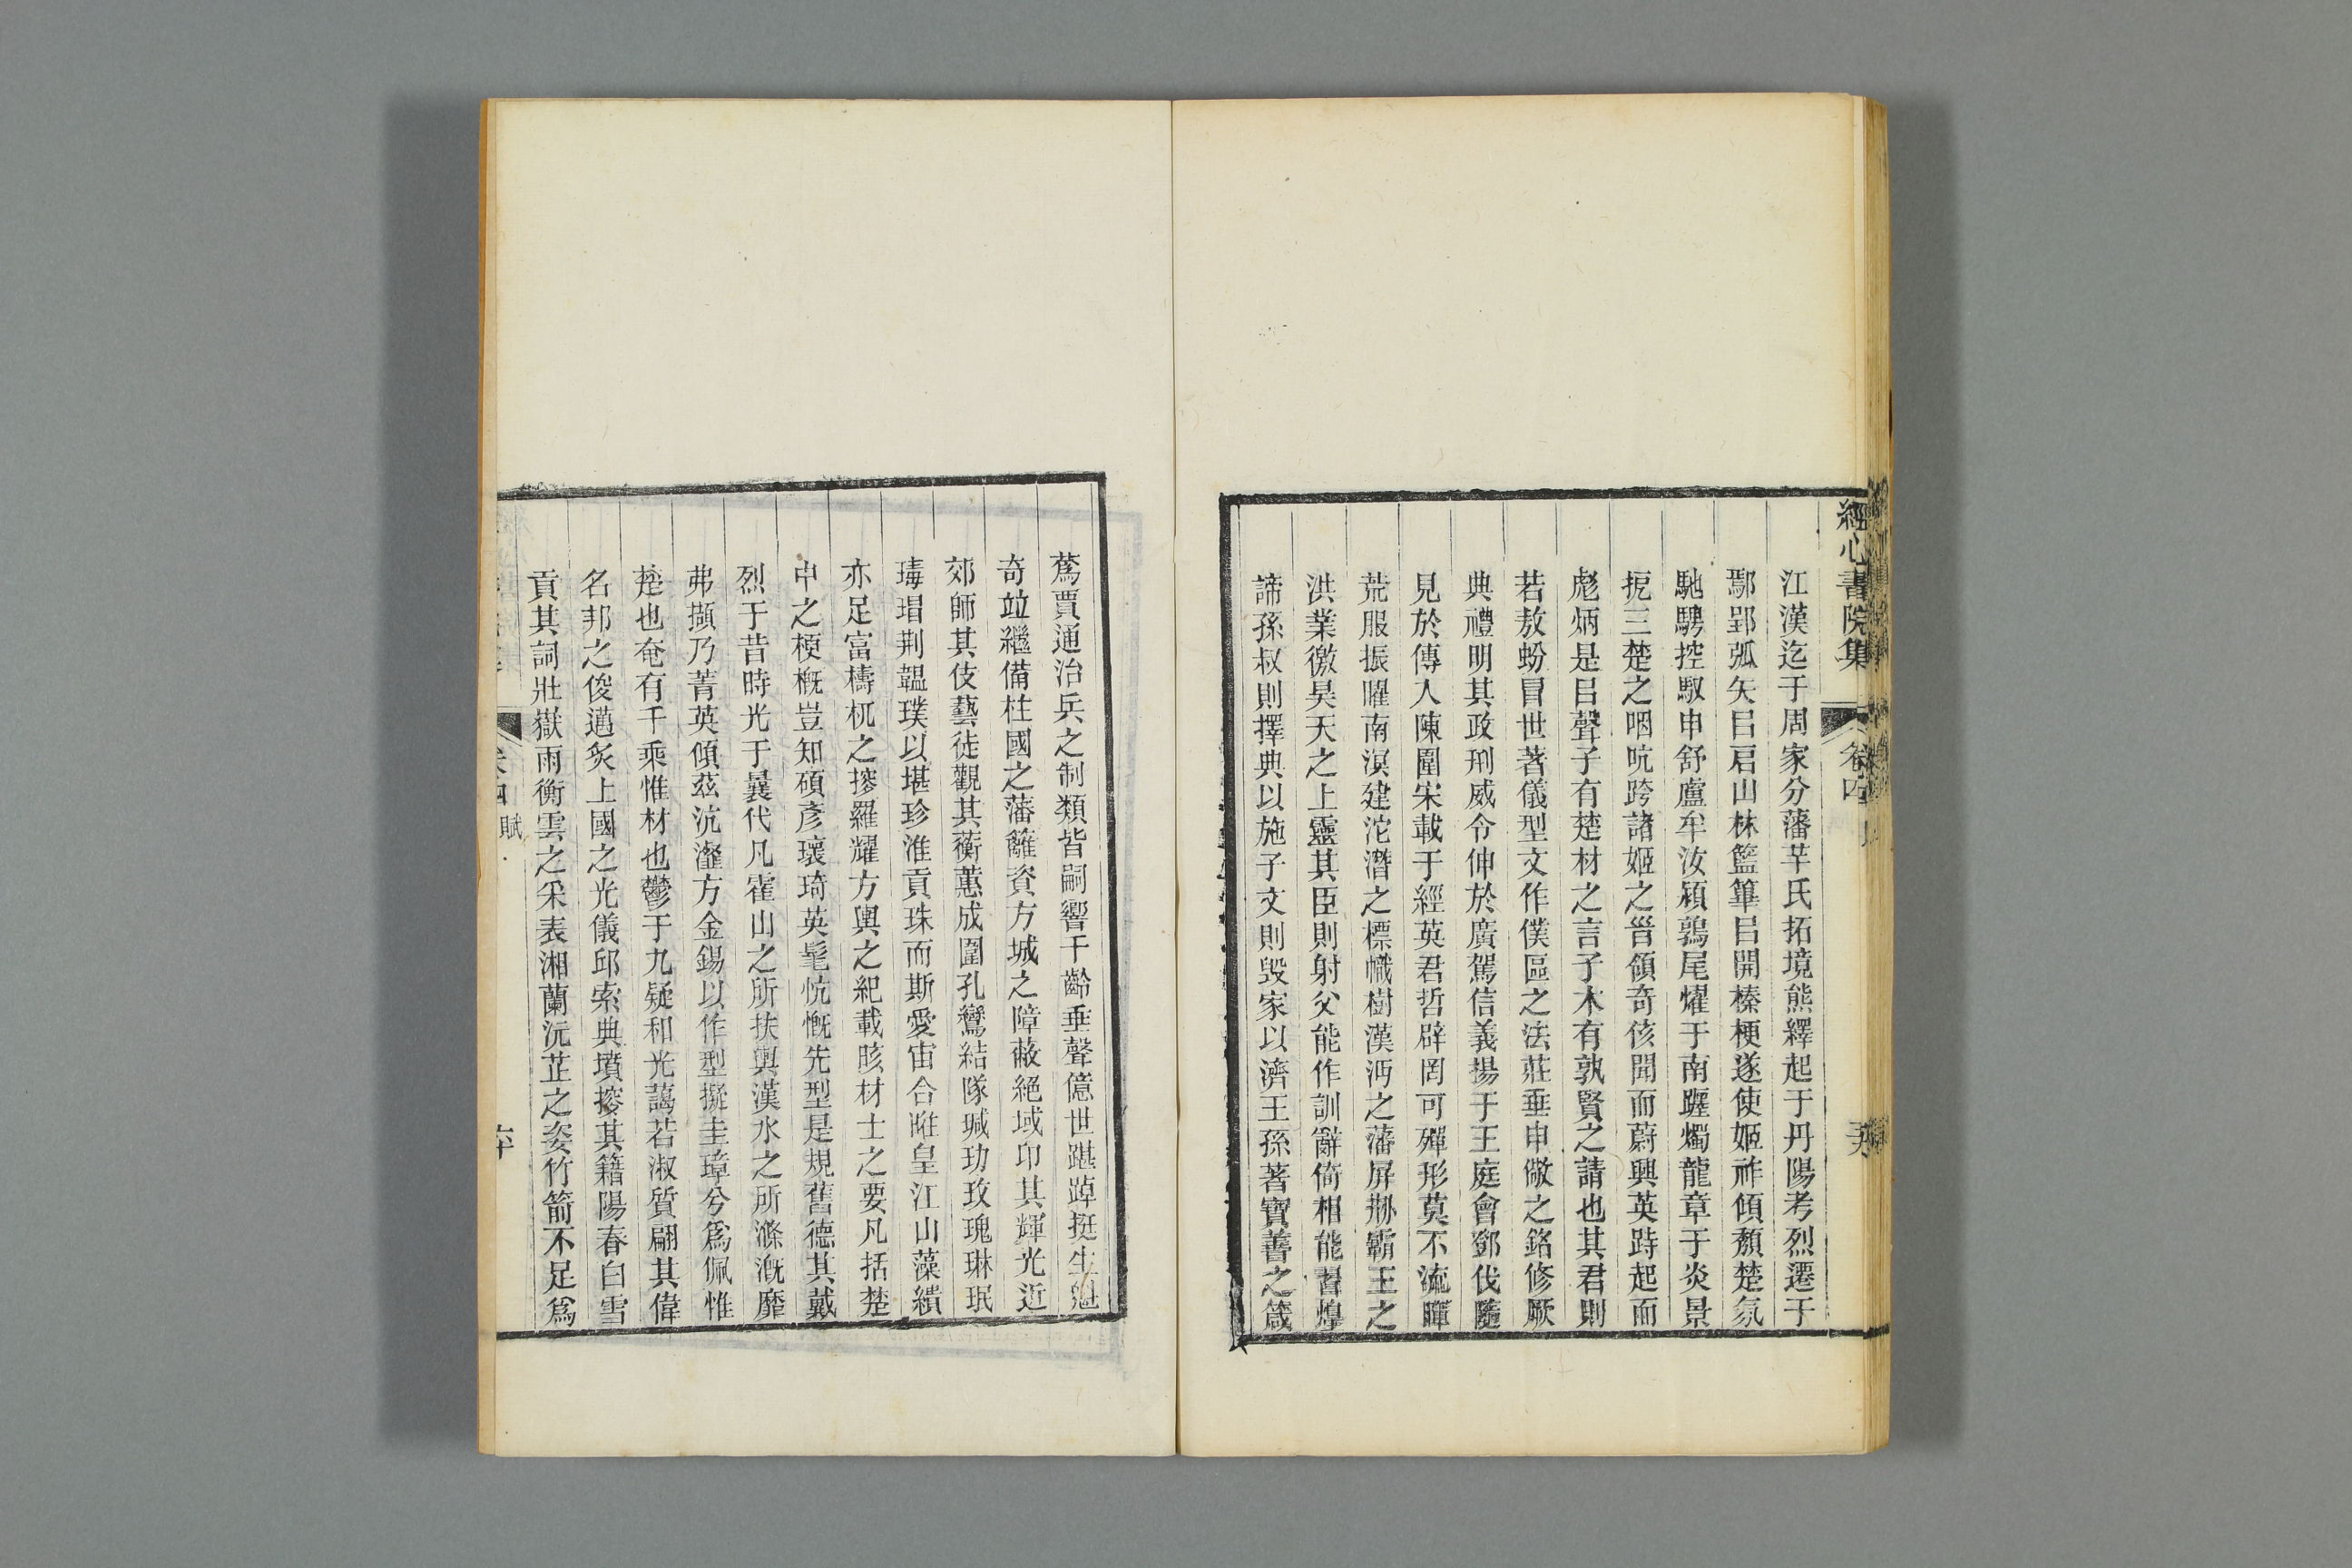 經心書院集
卷四
江漢迄于周家分藩芊氏拓境熊繹起于丹陽考烈遷于
鄢郢弧矢㠯启山林籃篳㠯開榛梗遂使姬祚傾頽楚氛
馳騁控馭申舒盧牟汝潁鶉尾燿于南躔燭龍章于炎景
扼三楚之咽吭跨諸姬之晉領奇侅聞而蔚興英跱起而
彪炳是㠯聲子有楚材之言子木有孰賢之請也其君則
若敖蚡冒世著儀型文作僕區之法莊垂申儆之銘修厥
典禮明其政刑威令伸於廣駕信義揚于王庭會鄧伐隨
見於傳人陳圍宋載于經英君哲辟罔可殫形莫不流暉
荒服振曜南溟建沱潛之標幟樹漢沔之藩屏掰霸王之
洪業徼昊天之上靈其臣則射父能作訓辭倚相能習煌
諦孫叔則擇典以施子文則毀家以濟王孫著寶善之箴
蔿賈通治兵之制類皆嗣響千齡垂聲億世踸踔挺生
奇竝繼備柱國之藩籬資方城之障蔽絕域印其輝光近
郊師其伎藝徒觀其蘅蕙成圍孔鸞結隊瑊玏玫瑰琳珉
瑇瑁荆韞璞以堪珍淮貢珠而斯愛宙合睢皇江山藻繢
亦足富檮杌之搜羅耀方輿之紀載晐材士之要凡括楚
中之梗概豈知碩彥瓌琦英髦忼慨先型是規舊德其戴
烈于昔時光于曩代凡霍山之所扶輿漢水之所滌溉靡
弗擷乃菁英傾茲沆瀣方金錫以作型擬圭璋兮爲佩惟
楚也奄有千乘惟材也鬱于九疑和光藹若淑質翩其偉
名邦之俊邁炙上國之光儀邱索典墳搜其籍陽春白雪
貢其詞壯嶽雨衡雲之采表湘蘭沅芷之姿竹箭不足爲
賦